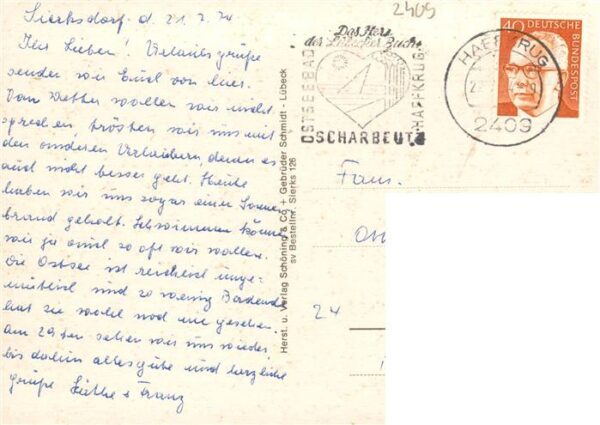 Sierksdorf. d. 21.7.74
Ihr Lieben! Urlaubsgrüße
senden wir Euch von hier.
Vom Wetter wollen wir nicht
sprechen, trösten wir uns mit
den anderen Urlaubern, denen es
auch nicht besser geht. Heute
haben wir uns sogar einen Sonnen
brand geholt. Schwimmen können
wir ja auch so oft wir wollen.
Die Ostsee ist reichend
und so wenig Badende
hat sie wohl noch nie gesehen.
Am 29ten sehen wir uns wieder,
bis dahin alles gute und herzliche
grüße Käthe + Franz
Herst. u. Verlag Schöning & Co. + Gebrüder Schmidt - Lübeck
sv Bestellnr. Sierks 126
2409
Das Herz
der Lübecker Bucht
OSTSEEBAD
HAFFKRUG
SCHARBEUTZ
HAFFKRUG
2409
40 DEUTSCHE
BUNDESPOST
Fam.
24